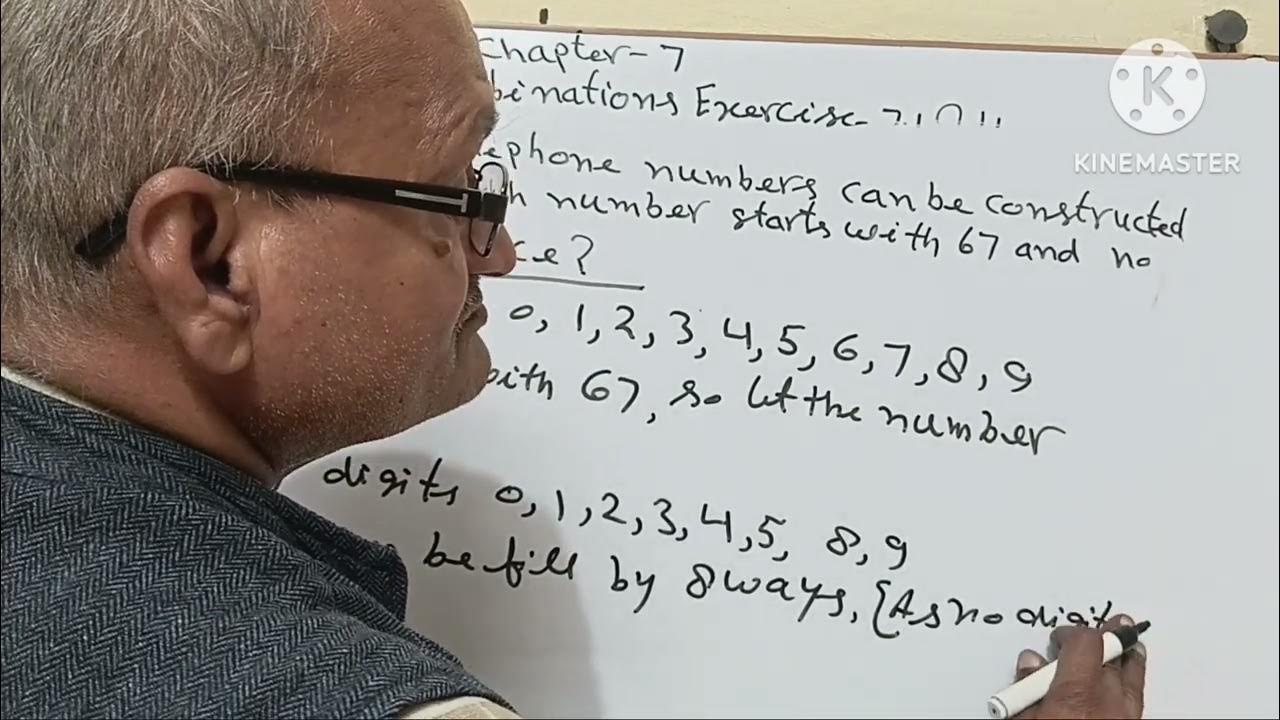 Chapter-7
KINEMASTER
binations Exercise-
ephone numbers can be constructed
h number starts with 67 and no
ce?
0, 1, 2, 3, 4, 5, 6, 7, 8, 9
with 67, so let the number
digits 0, 1, 2, 3, 4, 5, 8, 9
be fill by 8 ways, {As no digit